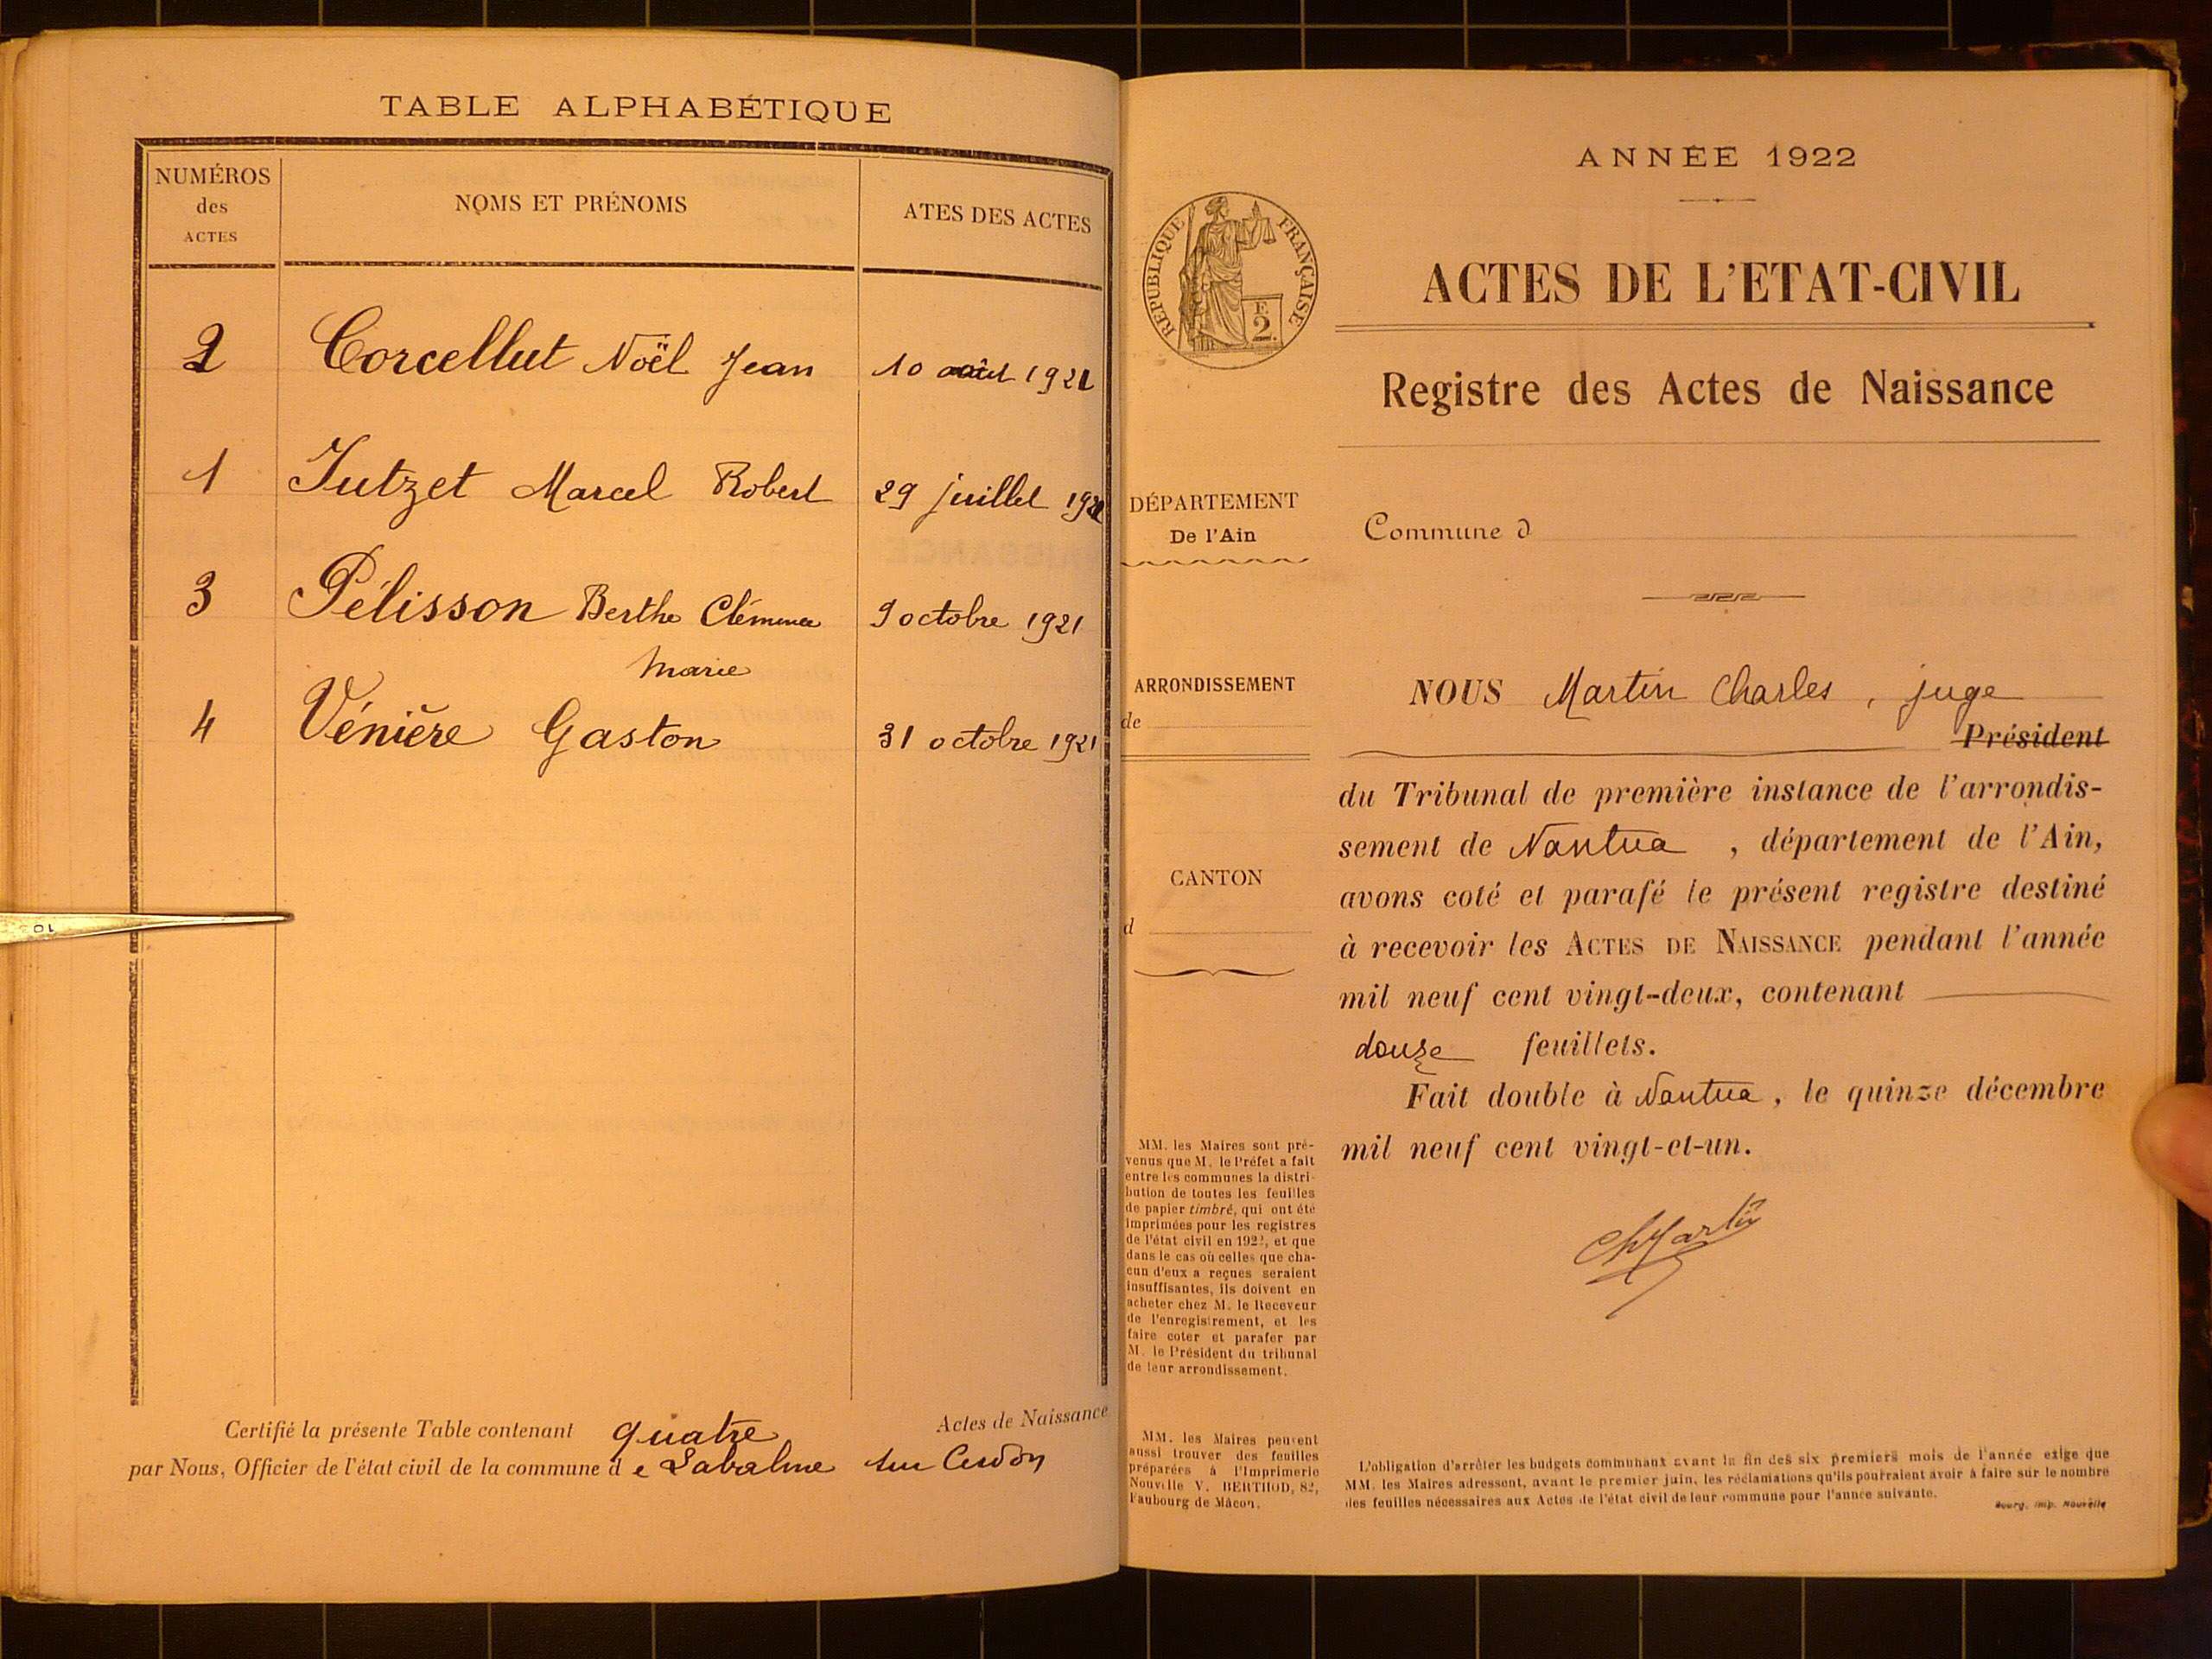 TABLE ALPHABÉTIQUE
NUMÉROS
des
ACTES
NOMS ET PRÉNOMS
ATES DES ACTES
2 Corcellut Noël Jean 10 août 1921
1 Jutzet Marcel Robert 29 juillet 1921
3 Pélisson Berthe Clémence 9 octobre 1921
Marie
4 Vénière Gaston 31 octobre 1921
10
Certifié la présente Table contenant quatre Actes de Naissance
par Nous, Officier de l'état civil de la commune d e Labalme sur Cerdon
ANNÉE 1922
RÉPUBLIQUE FRANÇAISE
2
ACTES DE L'ETAT-CIVIL
Registre des Actes de Naissance
DÉPARTEMENT
De l'Ain
Commune d
ARRONDISSEMENT
de
CANTON
d
NOUS Martin Charles, juge
Président
du Tribunal de première instance de l'arrondis-
sement de Nantua, département de l'Ain,
avons coté et parafé le présent registre destiné
à recevoir les ACTES DE NAISSANCE pendant l'année
mil neuf cent vingt-deux, contenant
douze feuillets.
Fait double à Nantua, le quinze décembre
mil neuf cent vingt-et-un.
Ch Martin
MM. les Maires sont pré-
venus que M. le Préfet a fait
entre les communes la distri-
bution de toutes les feuilles
de papier timbré, qui ont été
imprimées pour les registres
de l'état civil en 1922, et que
dans le cas où celles que cha-
cun d'eux a reçues seraient
insuffisantes, ils doivent en
acheter chez M. le Receveur
de l'enregistrement, et les
faire coter et parafer par
M. le Président du tribunal
de leur arrondissement.
MM. les Maires peuvent
aussi trouver des feuilles
préparées à l'Imprimerie
Nouvelle V. BERTHOD, 82,
Faubourg de Mâcon.
L'obligation d'arrêter les budgets communaux avant la fin des six premiers mois de l'année exige que
MM. les Maires adressent, avant le premier juin, les réclamations qu'ils pourraient avoir à faire sur le nombre
des feuilles nécessaires aux Actes de l'état civil de leur commune pour l'année suivante.
Bourg, Imp. Nouvelle